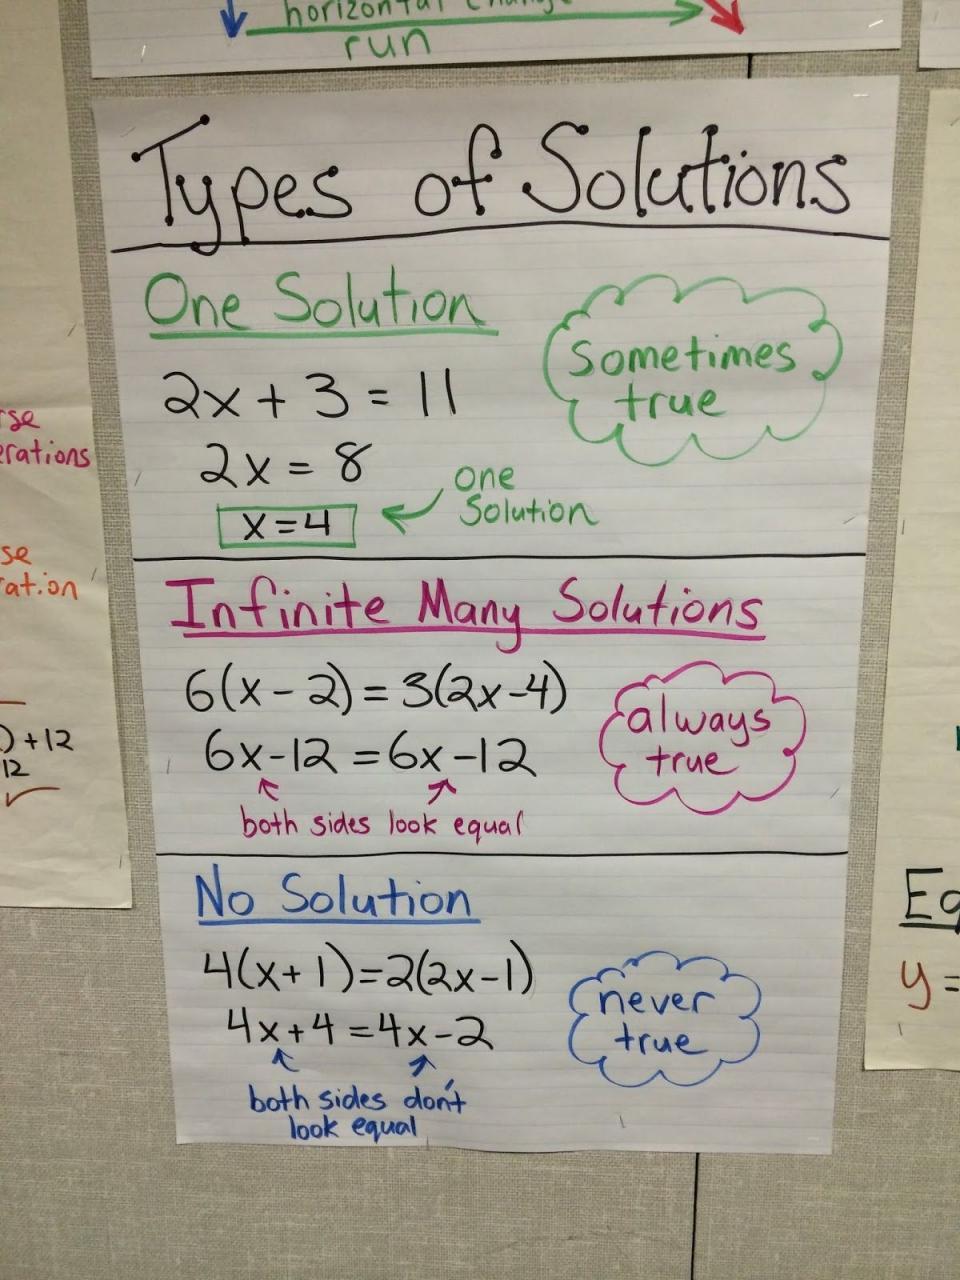 horizontal change
run
Types of Solutions
One Solution
Sometimes
true
2x + 3 = 11
2x = 8
x = 4
one
Solution
Infinite Many Solutions
6(x - 2) = 3(2x-4)
6x-12 = 6x-12
always
true
both sides look equal
No Solution
4(x+1)=2(2x-1)
4x+4 = 4x-2
never
true
both sides don't
look equal
) +12
12
y =